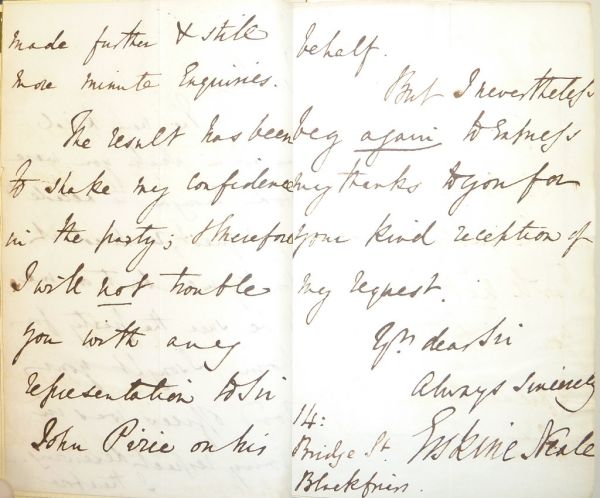 made further & still
more minute Enquiries.
The result has been
to shake my confidence
in the party; & therefore
I will not trouble
you with any
representation to Sir
John Pirie on his
behalf.
But I nevertheless
beg again to Express
my thanks to you for
your kind reception of
my request.
Yrs dear Sir
Always Sincerely
Erskine Neale
14:
Bridge St.
Blackfriars.